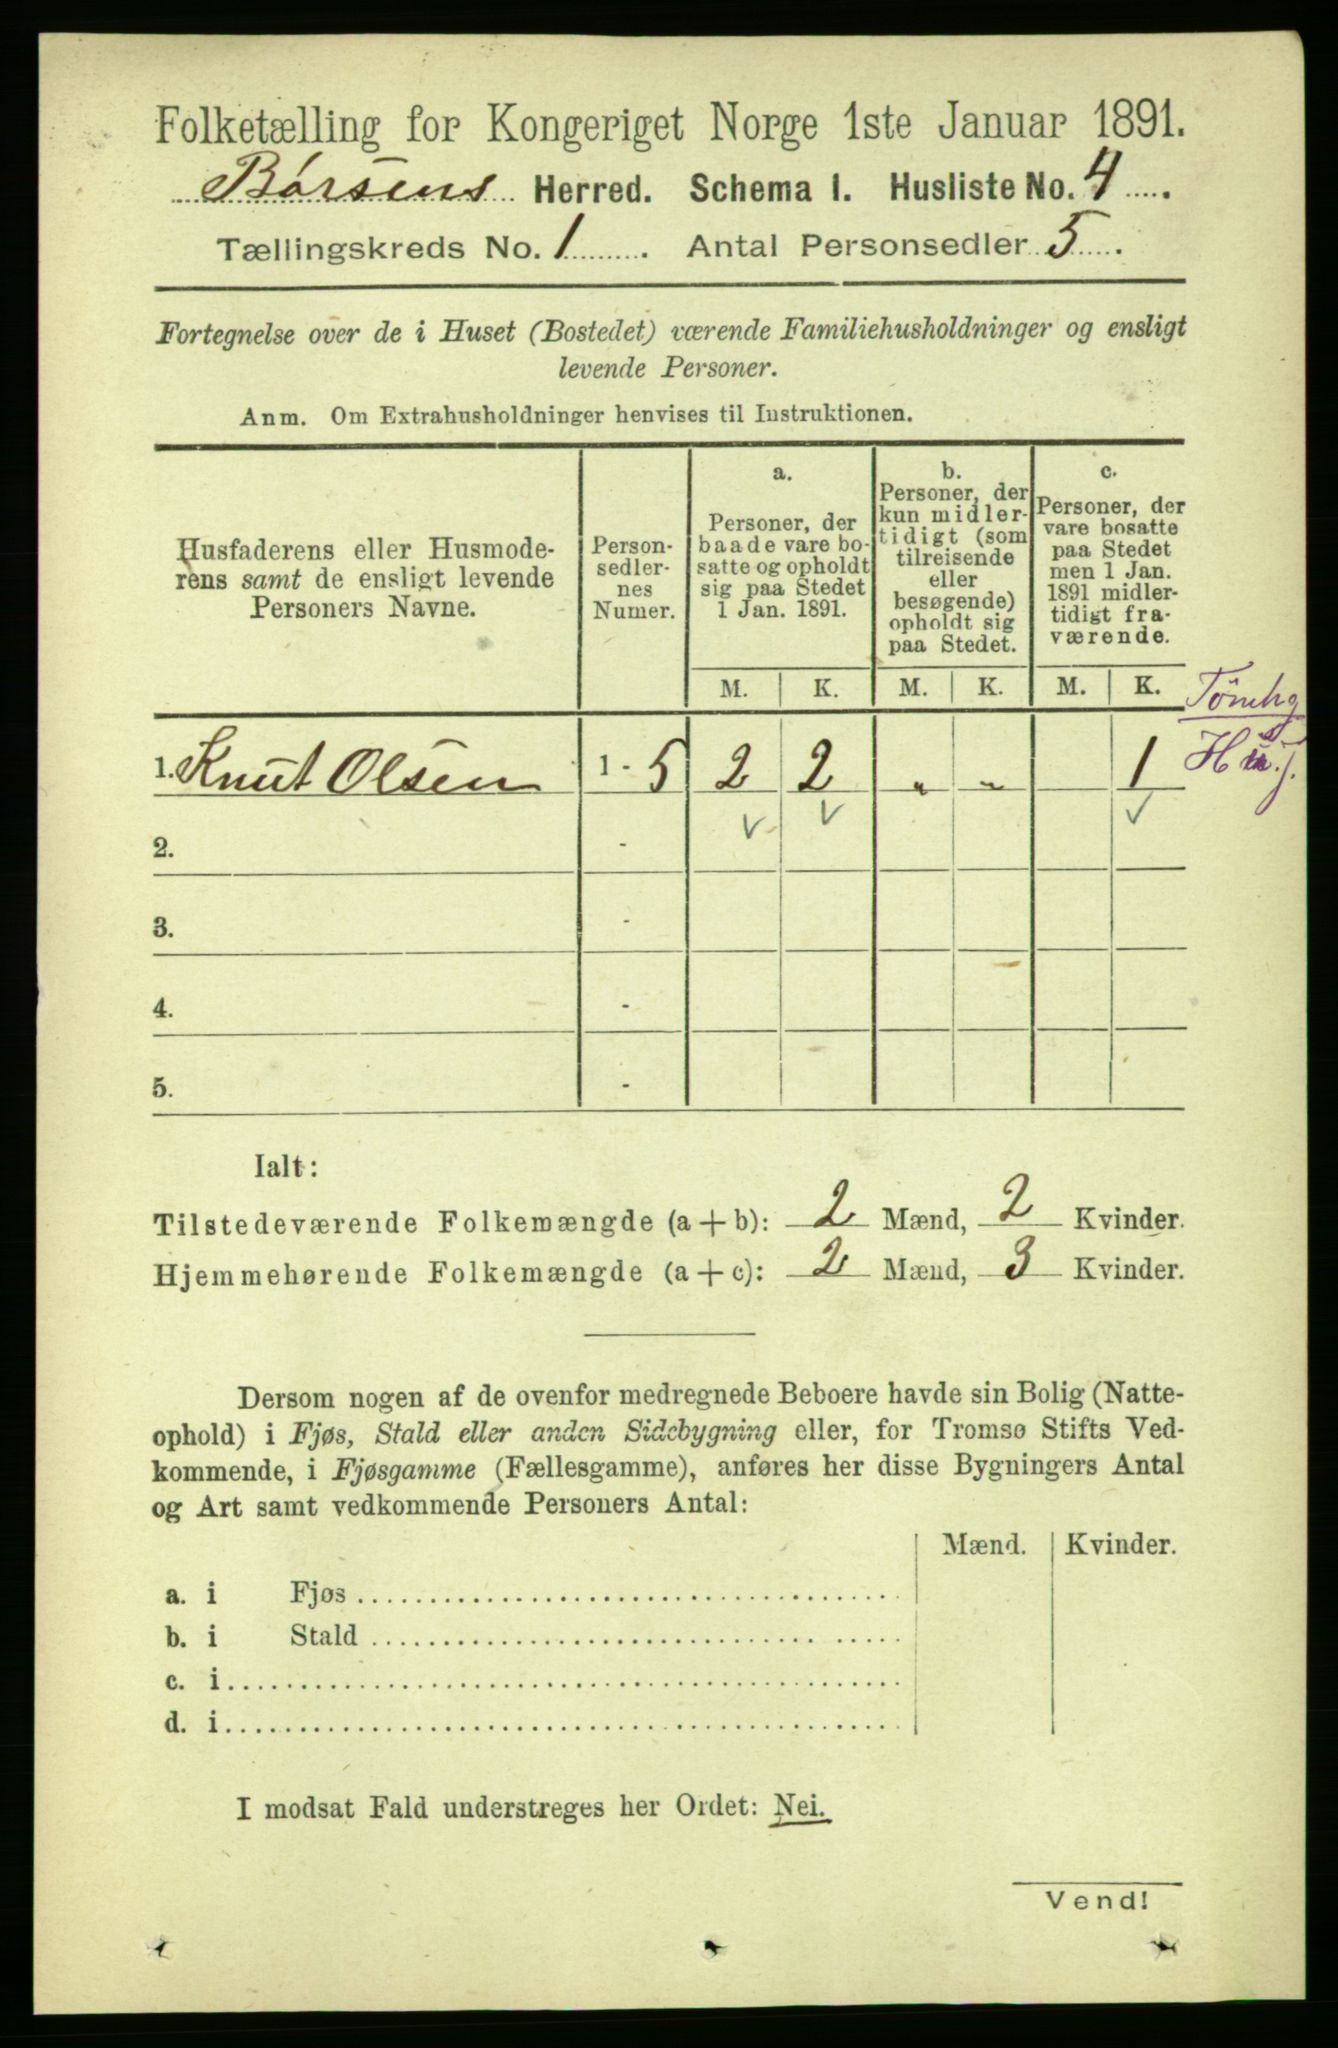 Folketælling for Kongeriget Norge 1ste Januar 1891.
Børsens Herred. Schema I. Husliste No. 4
Tællingskreds No. 1. Antal Personsedler 5.
Fortegnelse over de i Huset (Bostedet) værende Familiehusholdninger og ensligt
levende Personer.
Anm. Om Extrahusholdninger henvises til Instruktionen.
Husfaderens eller Husmode-
rens samt de ensligt levende
Personers Navne.
Person-
sedler-
nes
Numer.
a.
Personer, der
baade vare bo-
satte og opholdt
sig paa Stedet
1 Jan. 1891.
b.
Personer, der
kun midler-
tidigt (som
tilreisende
eller
besøgende)
opholdt sig
paa Stedet.
c.
Personer, der
vare bosatte
paa Stedet
men 1 Jan.
1891 midler-
tidigt fra-
værende.
M. K. M. K. M. K.
1. Knut Olsen 1 - 5 2 2 „ „ 1
2. -
3. -
4. -
5. -
Ialt:
Tilstedeværende Folkemængde (a + b): 2 Mænd, 2 Kvinder.
Hjemmehørende Folkemængde (a + c): 2 Mænd, 3 Kvinder.
Dersom nogen af de ovenfor medregnede Beboere havde sin Bolig (Natte-
ophold) i Fjøs, Stald eller anden Sidebygning eller, for Tromsø Stifts Ved-
kommende, i Fjøsgamme (Fællesgamme), anføres her disse Bygningers Antal
og Art samt vedkommende Personers Antal:
Mænd. Kvinder.
a. i Fjøs
b. i Stald
c. i
d. i
I modsat Fald understreges her Ordet: Nei.
Vend!